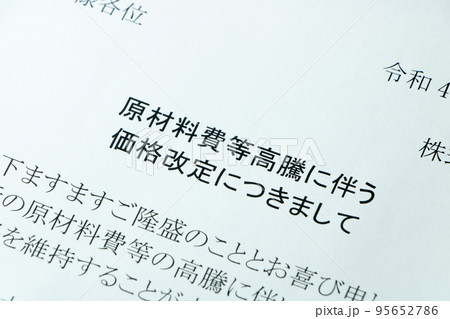 様各位
令和 4
株式
原材料費等高騰に伴う
価格改定につきまして
下ますますご隆盛のこととお喜び申し
の原材料費等の高騰に伴い
を維持することが
PIXTA
pixta.jp - 95652786